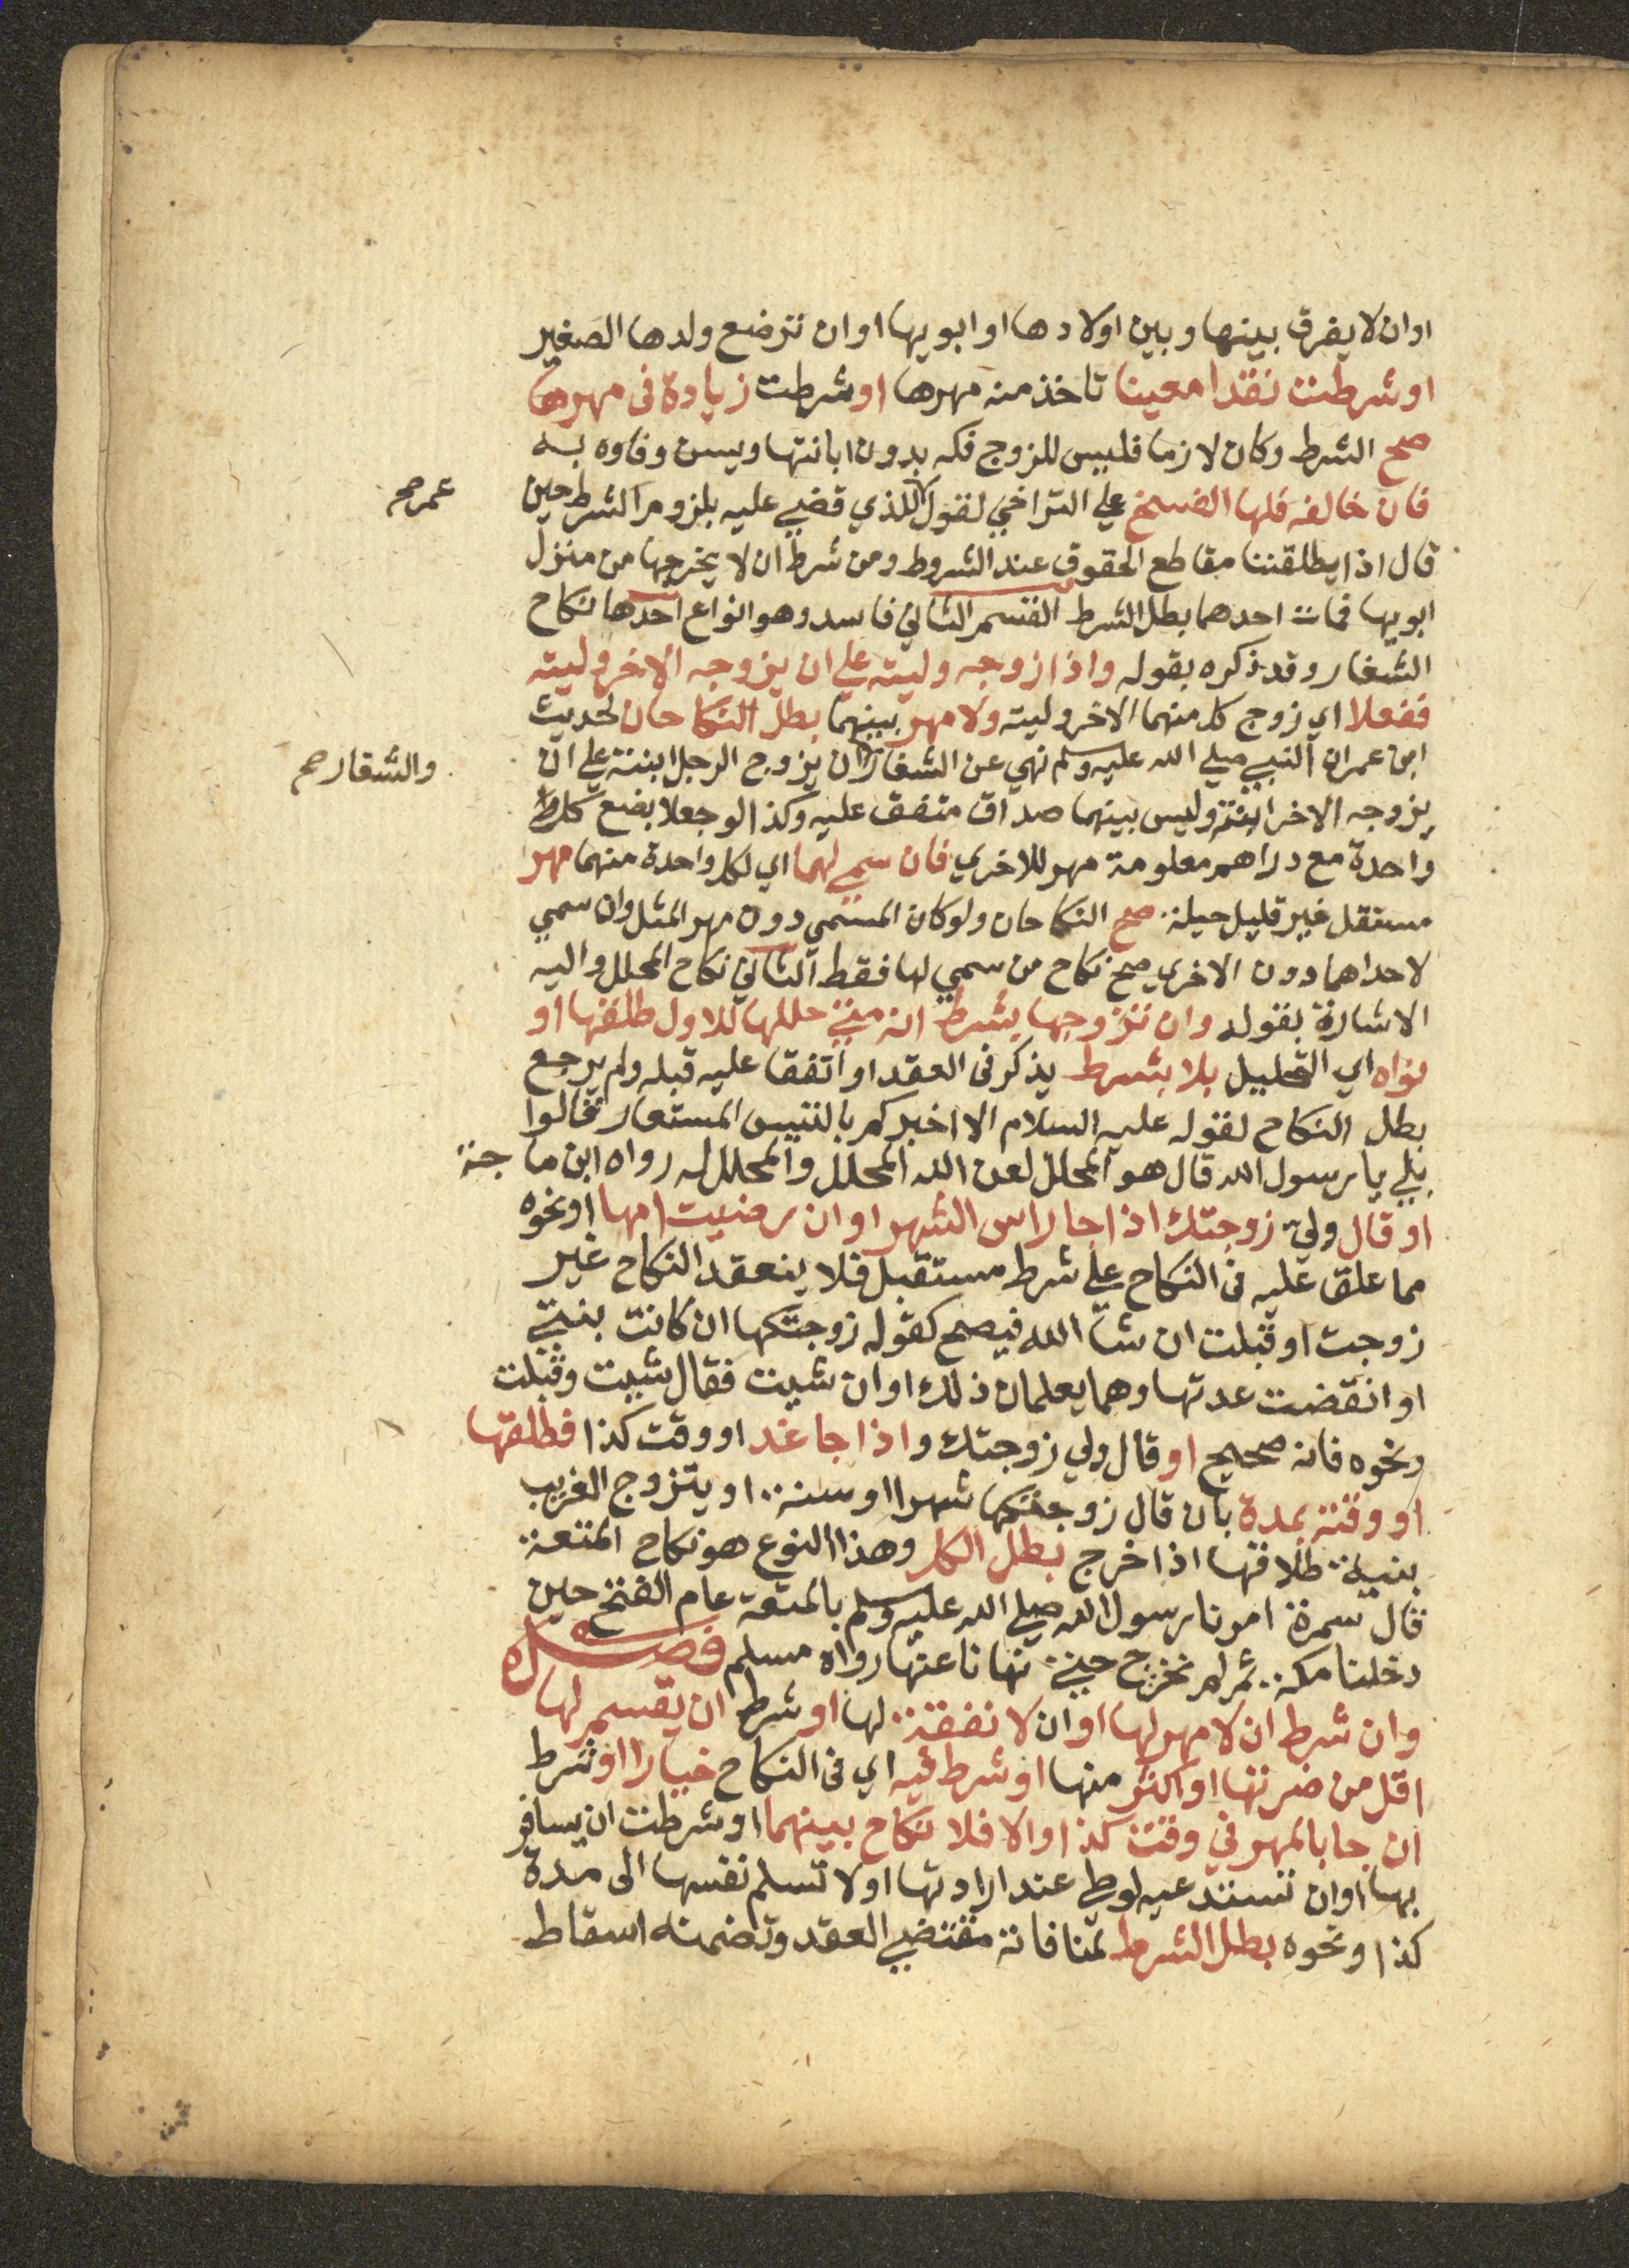 اوان لا يفرق بينها وبين اولادها او ابويها او ان ترضع ولدها الصغير
او شرطت نقدا معينا تاخذ منه مهرها او شرطت زيادة فى مهرها
صح الشرط وكان لازما فليس للزوج فكه بدون ابانتها ويسن وفاوه به
فان خالفه فلها الفسخ علي التراخي لقول للذي قضي عليه بلزوم الشرط حين
عمر صح
قال اذا يطلقننا مقاطع الحقوق عند الشروط ومن شرط ان لا يخرجها من منزل
ابويها فمات احدهما بطل الشرط القسم الثاني فاسد وهو انواع احدها نكاح
الشغار وقد ذكره بقوله واذا زوجه وليته علي ان يزوجه الاخر وليته
ففعلا اي زوج كل منهما الاخر وليته ولا مهر بينهما بطل النكاحان لحديث
ابن عمر ان النبي صلي الله عليه وسلم نهي عن الشغار ان يزوج الرجل ابنته علي ان
والشغار صح
يزوجه الاخر ابنته وليس بينهما صداق متفق عليه وكذا لو جعلا بضع كل
واحدة مع دراهم معلومة مهر للاخري فان سمي لهما اي لكل واحدة منهما مهر
مستقل غير قليل حيلة صح النكاحان ولو كان المسمي دون مهر المثل وان سمي
لاحداهما دون الاخري صح نكاح من سمي لها فقط الثاني نكاح المحلل واليه
الاشارة بقوله وان تزوجها بشرط انه متي حللها للاول طلقها او
نواه اي التحليل بلا شرط يذكر فى العقد او اتفقا عليه قبله ولم يرجع
بطل النكاح لقوله عليه السلام الا اخبركم بالتيس المستعار قالوا
بلي يا رسول الله قال هو المحلل لعن الله المحلل والمحلل له رواه ابن ماجة
او قال ولي زوجتك اذا جا راس الشهر او ان رضيت امها او نحوه
مما علق عليه فى النكاح على شرط مستقبل فلا ينعقد النكاح غير
زوجت او قبلت ان شا الله فيصح كقوله زوجتكها ان كانت بنتي
او انقضت عدتها وهما يعلمان ذلك او ان شيت فقال شيت وقبلت
ونحوه فانه صحيح او قال ولي زوجتك واذا جا غد او وقت كذا فطلقها
او وقته بمدة بان قال زوجتكها شهرا او سنة او يتزوج الغريب
بنية طلاقها اذا خرج بطل الكل وهذا النوع هو نكاح المتعة
قال سمرة امرنا رسول الله صلي الله عليه وسلم بالمتعة عام الفتح حين
دخلنا مكة ثم لم نخرج حتي نهانا عنها رواه مسلم فصل
وان شرط ان لا مهر لها او ان لا نفقة لها او شرط ان يقسم لها
اقل من ضرتها او اكثر منها او شرط فيه اي فى النكاح خيارا او شرط
ان جا بالمهر في وقت كذا والا فلا نكاح بينهما او شرطت ان يسافر
بها او ان تستدعيه لوطي عند ارادتها او لا تسلم نفسها الى مدة
كذا ونحوه بطل الشرط لمنافاته مقتضي العقد وتضمنه اسقاط